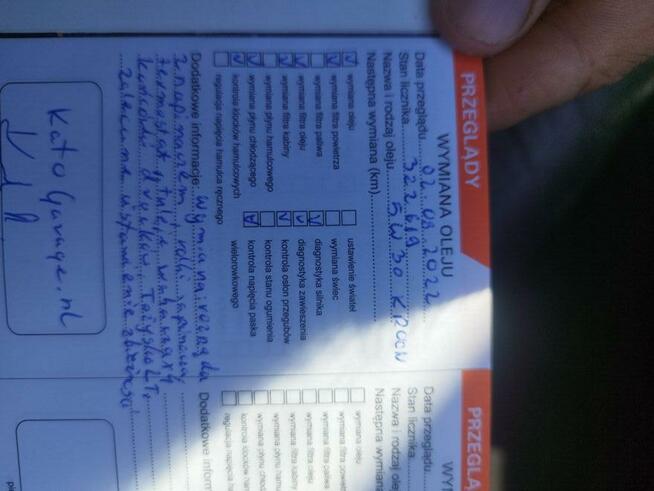 PRZEGLĄDY
WYMIANA OLEJU
Data przeglądu 02.08.2022
Stan licznika 322 619
Nazwa i rodzaj oleju 5W30 KROON
Następna wymiana (km)
wymiana oleju
wymiana filtra powietrza
wymiana filtra paliwa
wymiana filtra oleju
wymiana filtra kabiny
wymiana płynu hamulcowego
wymiana płynu chłodzącego
kontrola klocków hamulcowych
regulacja napięcia hamulca ręcznego
ustawienie świateł
wymiana świec
diagnostyka silnika
diagnostyka zawieszenia
kontrola osłon przegubów
kontrola stanu ogumienia
kontrola napięcia paska
wielorowkowego
Dodatkowe informacje: Wymiana rozrządu
z napinaczem, rolki
termostat, tuleje wahaczy
końcówki drążków
zalecane ustawienie zbieżności
KatoGarage.nl
PRZEGLĄ
WY
Data przeglądu
Stan licznika
Nazwa i rodzaj ole
Następna wymiana
wymiana oleju
wymiana filtra powietr
wymiana filtra paliwa
wymiana filtra oleju
wymiana filtra kabiny
wymiana płynu ham
wymiana płynu chłod
kontrola klocków ham
regulacja napięcia ha
Dodatkowe inform